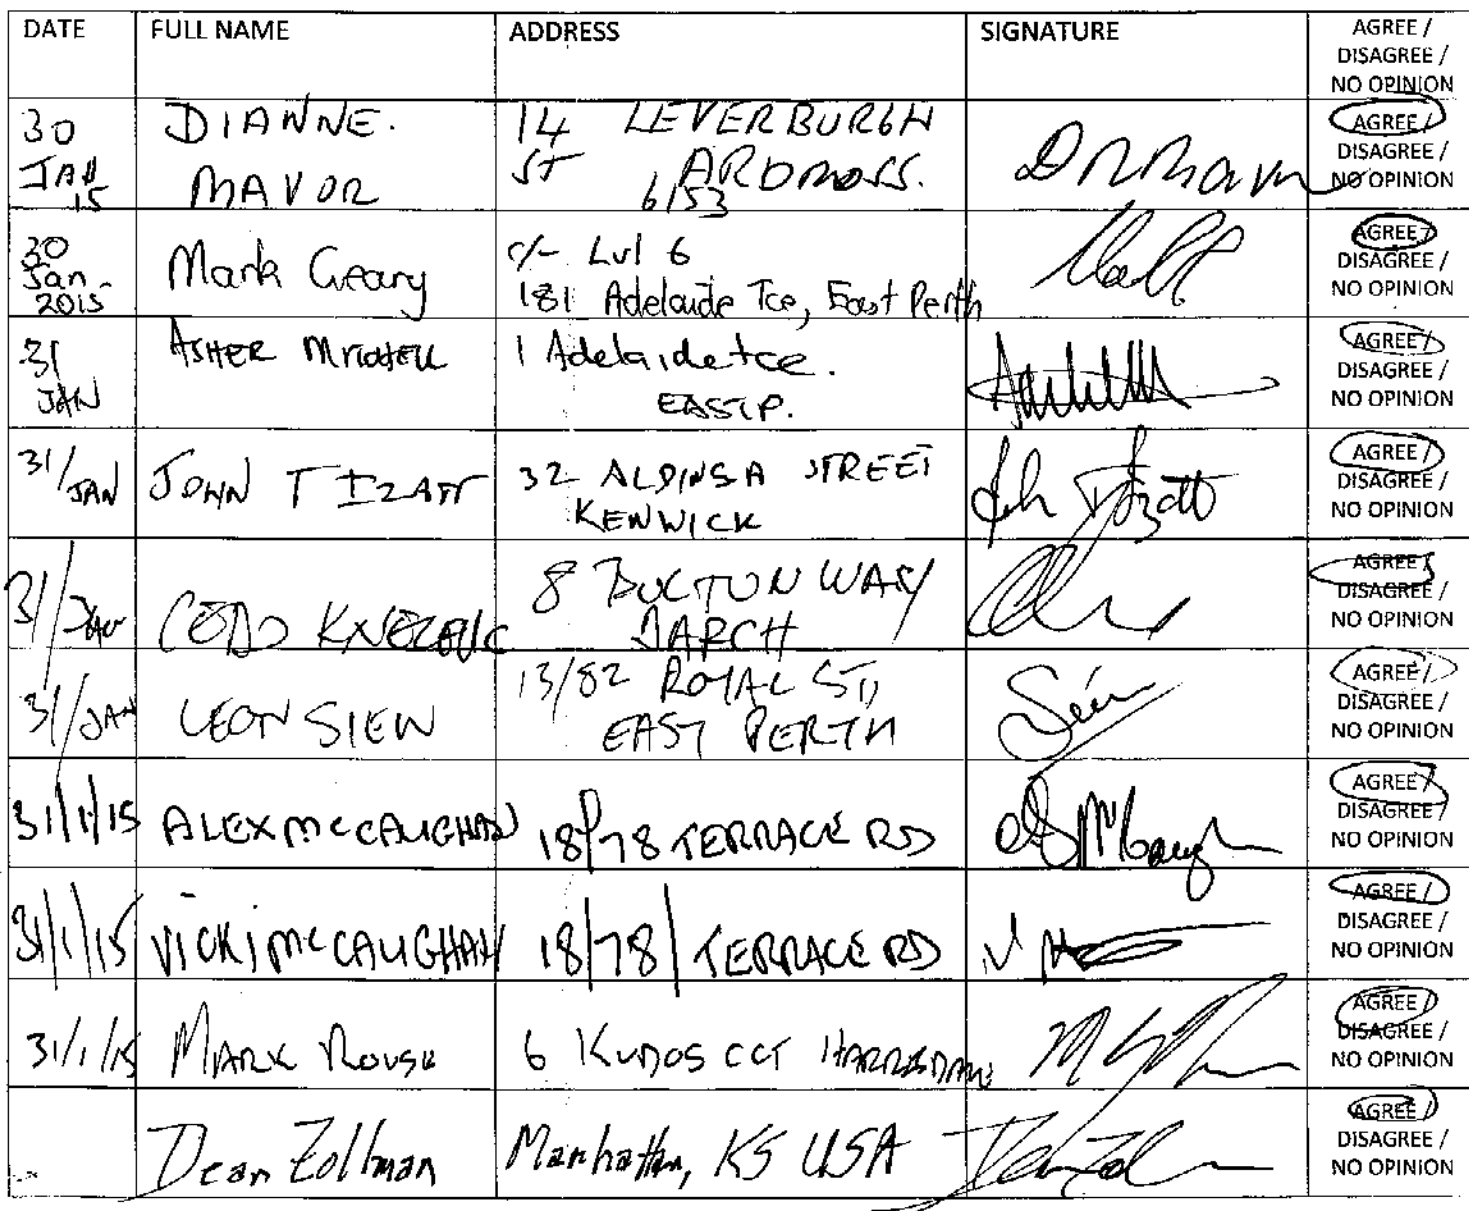 DATE FULL NAME ADDRESS SIGNATURE AGREE /
DISAGREE /
NO OPINION
30 DIANNE. 14 LEVERBURGH AGREE /
JAN MAVOR ST ARDROSS. DISAGREE /
15 6153 NO OPINION
30 Mark Geary c/- Lvl 6 AGREE /
Jan - 181 Adelaide Tce, East Perth DISAGREE /
2015 NO OPINION
31 ASHER MITCHELL 1 Adelaide tce. AGREE /
JAN EAST P. DISAGREE /
NO OPINION
31/JAN JOHN T IZATT 32 ALDINGA STREET John T Izatt AGREE /
KENWICK DISAGREE /
NO OPINION
31/Jan KNEZEVIC 8 BUCTON WAY AGREE /
DARCH DISAGREE /
NO OPINION
31/JAN LEON SIEW 13/82 ROYAL ST, AGREE /
EAST PERTH DISAGREE /
NO OPINION
31/1/15 ALEX McCAUGHAN 18/78 TERRACE RD AGREE /
DISAGREE /
NO OPINION
31/1/15 VICKI McCAUGHAN 18/78/ TERRACE RD AGREE /
DISAGREE /
NO OPINION
31/1/15 MARK ROUSE 6 KUDOS CCT HARRISDALE AGREE /
DISAGREE /
NO OPINION
Dean Zollman Manhattan, KS USA AGREE /
DISAGREE /
NO OPINION